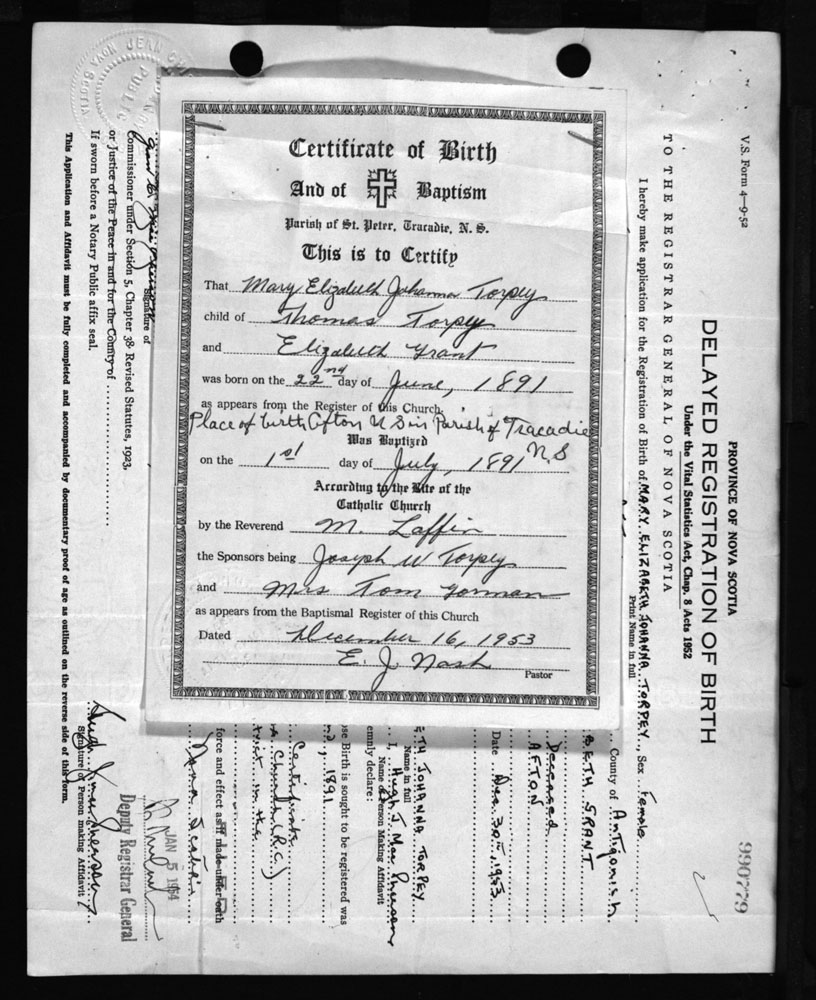 Certificate of Birth
And of Baptism
Parish of St. Peter, Tracadie, N. S.
This is to Certify
That Mary Elizabeth Johanna Torpey
child of Thomas Torpey
and Elizabeth Grant
was born on the 22nd day of June, 1891
as appears from the Register of this Church.
Place of birth Afton N S in Parish of Tracadie
N S
Was Baptized
on the 1st day of July, 1891
According to the Rite of the
Catholic Church
by the Reverend M. Laffin
the Sponsors being Joseph W Torpey
and Mrs Tom Gorman
as appears from the Baptismal Register of this Church
Dated December 16, 1953
E. J. Nash
Pastor
V.S. Form 4—9-52
990779
PROVINCE OF NOVA SCOTIA
DELAYED REGISTRATION OF BIRTH
Under the Vital Statistics Act, Chap. 8 Acts 1952
TO THE REGISTRAR GENERAL OF NOVA SCOTIA
I hereby make application for the Registration of Birth of MARY ELIZABETH JOHANNA TORPEY, Sex Female
Print Name in full
County of Antigonish
BETH GRANT
Deceased
AFTON
Date Dec 30th, 1953
ETH JOHANNA TORPEY
Name in full
I, Hugh J. MacPherson
Name of Person Making Affidavit
emnly declare:
ose Birth is sought to be registered was
1891
Certificate
Church (R.C.)
in the
force and effect as if made under oath
Nova Scotia
Signature of
Commissioner under Section 5, Chapter 38 Revised Statutes, 1923.
or Justice of the Peace in and for the County of
If sworn before a Notary Public affix seal.
JAN 5 1954
Deputy Registrar General
Signature of Person making Affidavit
This Application and Affidavit must be fully completed and accompanied by documentary proof of age as outlined on the reverse side of this form.